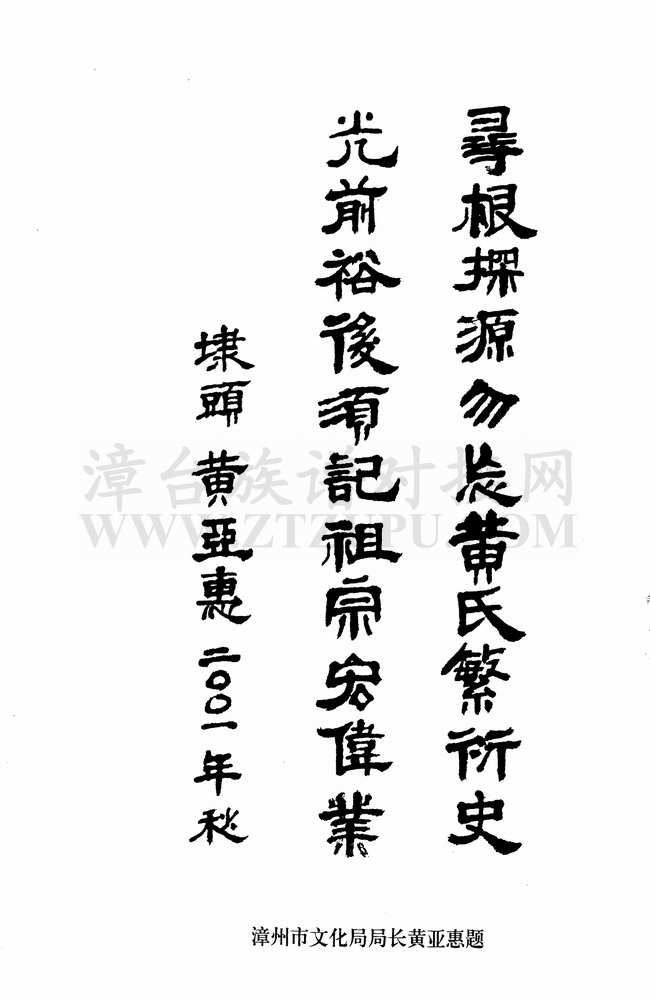 尋根探源勿忘黄氏繁衍史
光前裕後須記祖宗宏偉業
埭頭 黄亞惠 二〇〇一年秋
漳台族谱对接网
WWW.ZTZUPU.COM
漳州市文化局局长黄亚惠题